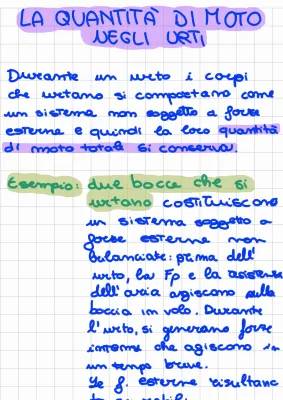 LA QUANTITÀ DI MOTO
NEGLI URTI
Durante un urto i corpi
che urtano si comportano come
un sistema non soggetto a forze
esterne e quindi la loro quantità
di moto totale si conserva.
Esempio: due bocce che si
urtano costituiscono
un sistema soggetto a
forze esterne non
bilanciate: prima dell'
urto, la Fp e la resistenza
dell'aria agiscono sulla
boccia in volo. Durante
l'urto, si generano forze
interne che agiscono in
un tempo breve.
le f. esterne risultano